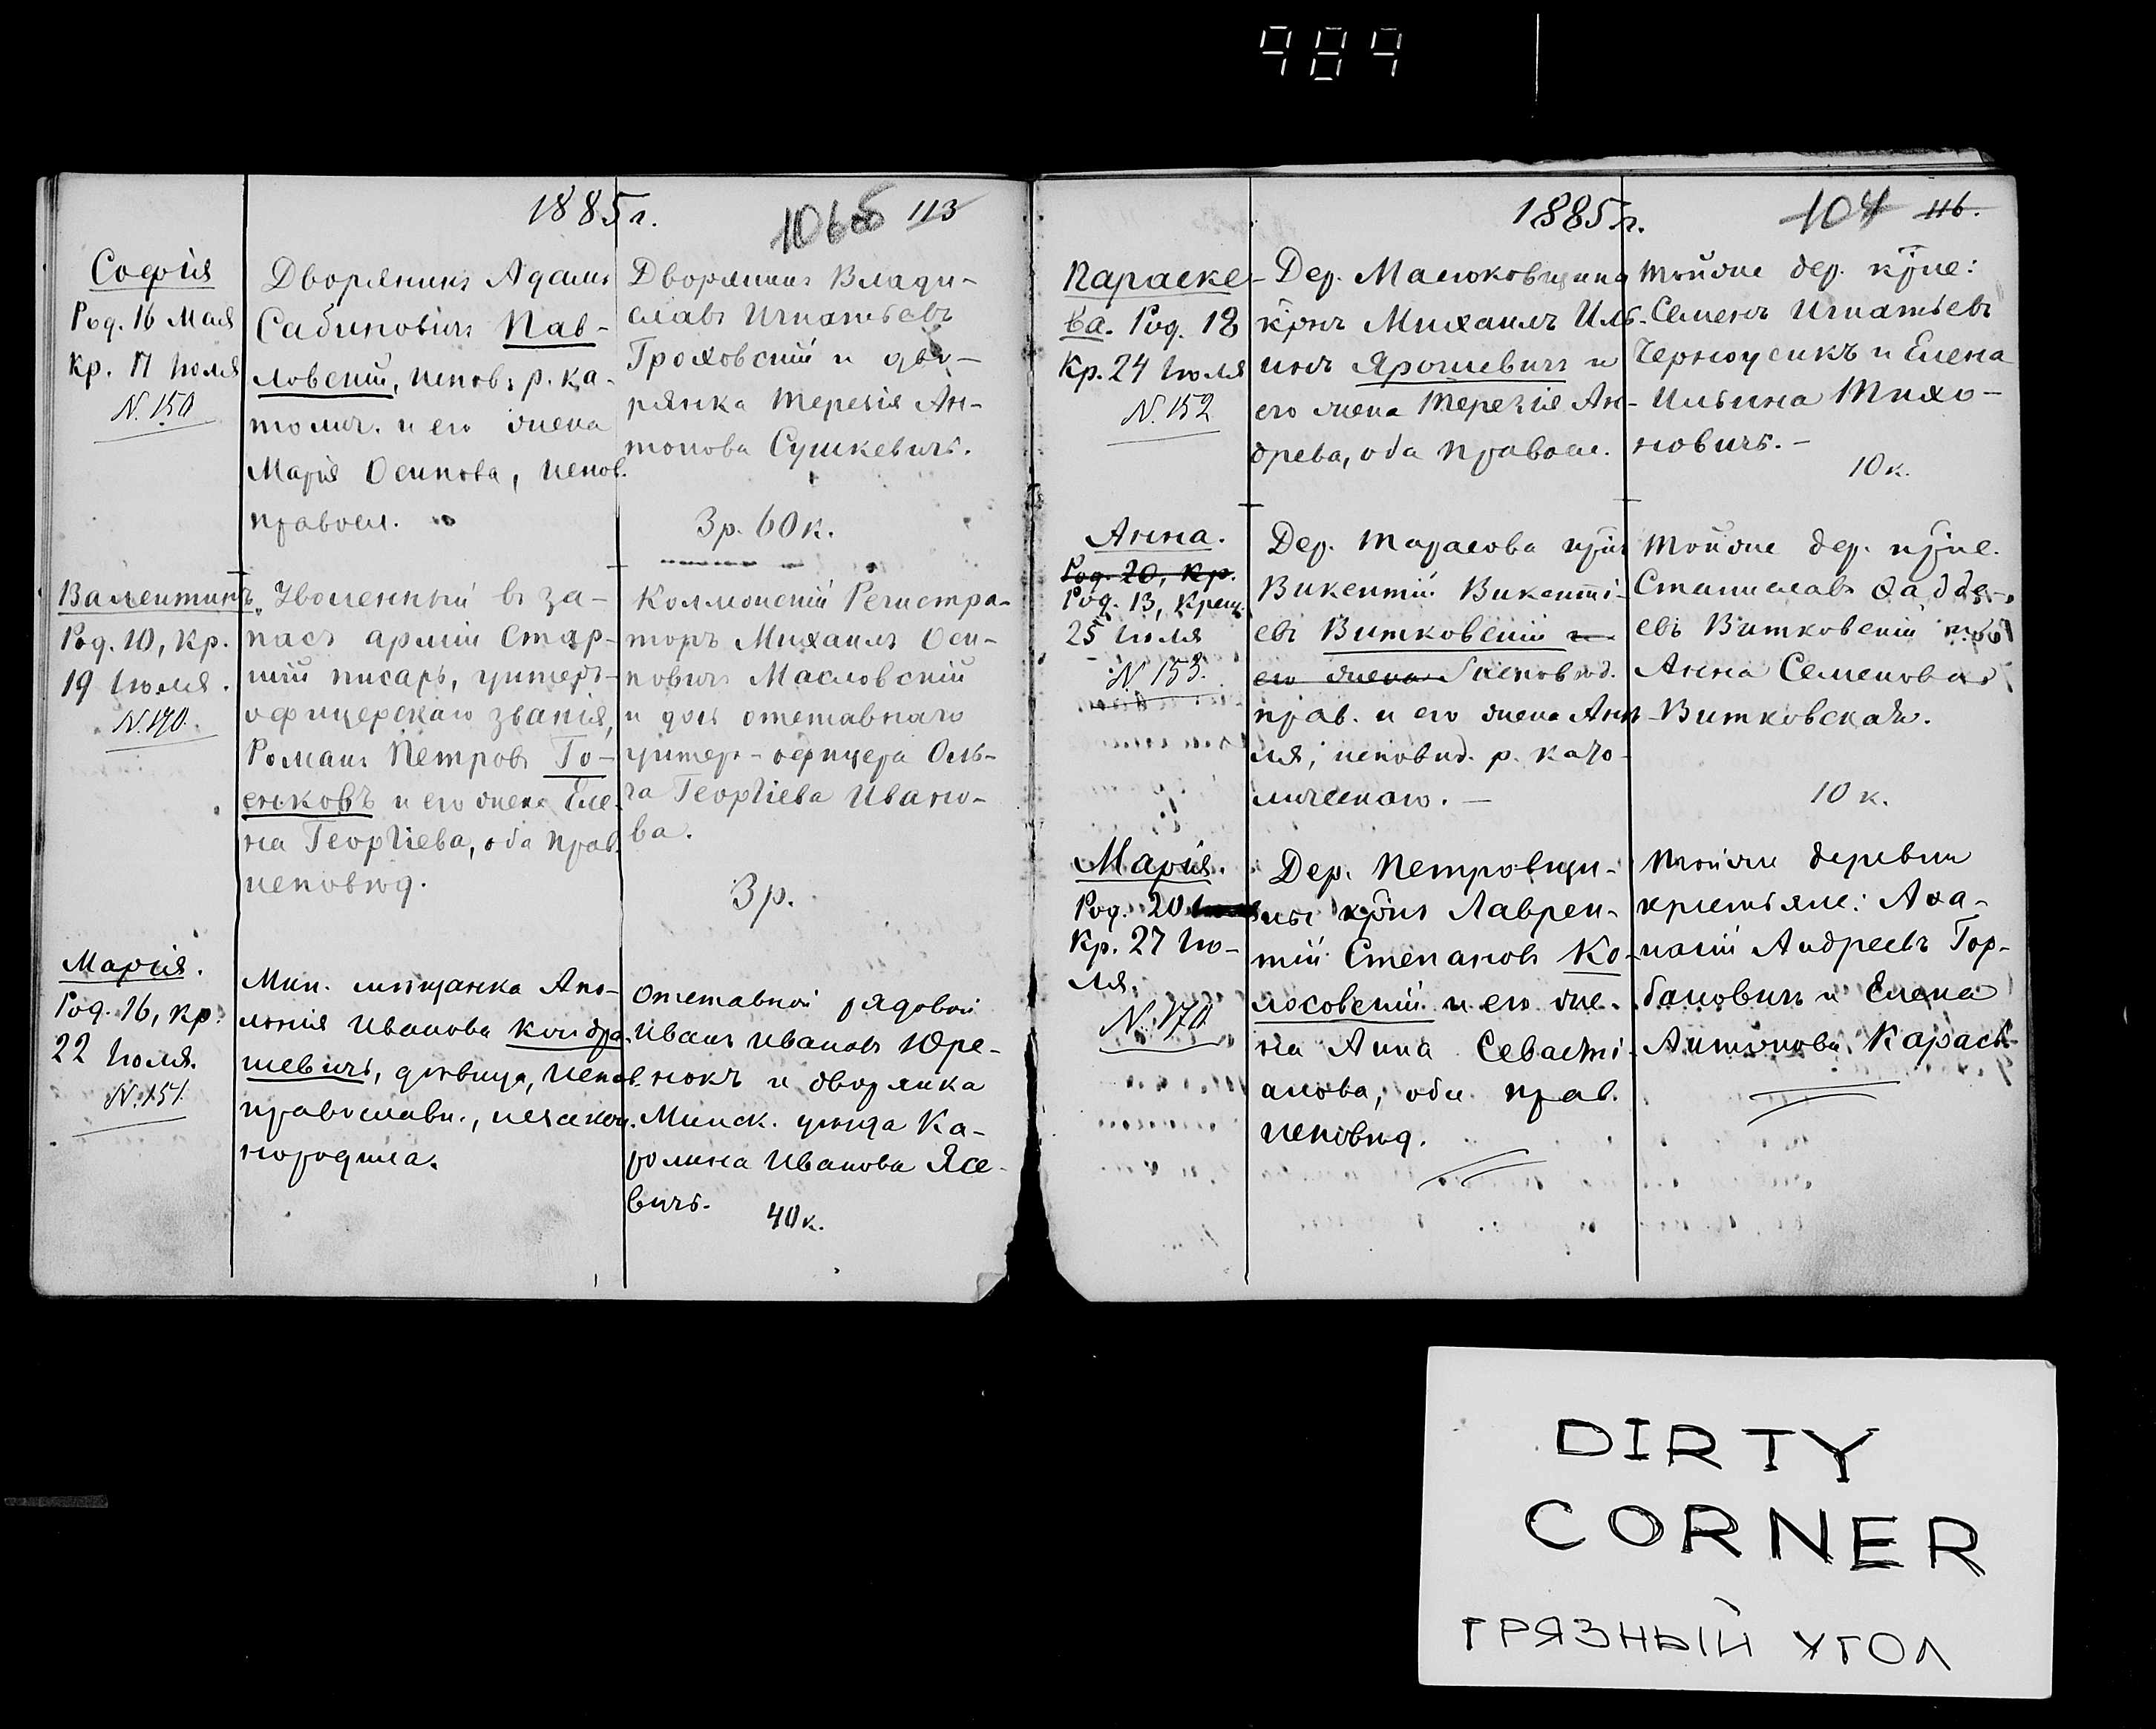 989
1885 г.
106об 113
София
Род. 16 Мая
кр. 17 Июля
N. 150
Дворянинъ Адамъ
Сабиновичъ Пав-
ловскій, испов. р. ка-
толич. и его жена
Марія Осипова, испов.
правосл.
Дворянинъ Влади-
славъ Игнатьевъ
Гроховскій и дво-
рянка Терезія Ан-
тонова Сушкевичъ.
3 р. 60 к.
Валентинъ
Род. 10, Кр.
19 Июля.
N. 170.
Уволенный въ за-
пасъ арміи Стар-
шій писарь, унтеръ-
офицерскаго званія,
Романъ Петровъ Го-
енковъ и его жена Еле-
на Георгіева, оба прав.
исповѣд.
Коллежскій Регистра-
торъ Михаилъ Оси-
повичъ Масловскій
и дочь отставнаго
унтер-офицера Оль-
га Георгіева Ивано-
ва.
3 р.
Марія.
Род. 16, кр.
22 Июля.
N. 151.
Мин. мѣщанка Апо-
лонія Иванова Кондра-
шевичъ, дѣвица, испов.
православн., незакон-
нородила.
Отставной рядовой
Иванъ Ивановъ Юре-
нокъ и дворянка
Минск. уѣзда Ка-
ролина Иванова Ясе-
вичъ.
40 к.
1885 г.
104 116.
Параске-
ва. Род. 18
Кр. 24 Июля
N. 152
Дер. Масюковщина
крнъ Михаилъ Иль-
инъ Ярошевичъ и
его жена Терезія Ан-
древа, оба правосл.
Тойже дер. крне:
Семенъ Игнатьевъ
Черноусикъ и Елена
Ильина Тихо-
новичъ. -
10 к.
Анна.
Род. 20, Кр.
Род. 13, Крещ.
25 Июля
N. 153.
Дер. Тарасова крнъ
Викентій Викенті-
евъ Витковскій и
его жена исповѣд.
прав. и его жена Анн-
ля, исповид. р. като-
лическаго. -
Тойже дер. крне.
Станиславъ Фадде-
евъ Витковскій
Анна Семенова
Витковская.
10 к.
Марія.
Род. 20
Кр. 27 Ию-
ля.
N. 170.
Дер. Петровщи-
ны крнъ Лаврен-
тій Степановъ Ко-
лосовскій и его же-
на Анна Севасті-
анова, оба прав.
исповѣд.
Тойже деревни
крестьяне: Афа-
насій Андреевъ Гор-
бановичъ и Елена
Антонова Карась
DIRTY
CORNER
ГРЯЗНЫЙ УГОЛ